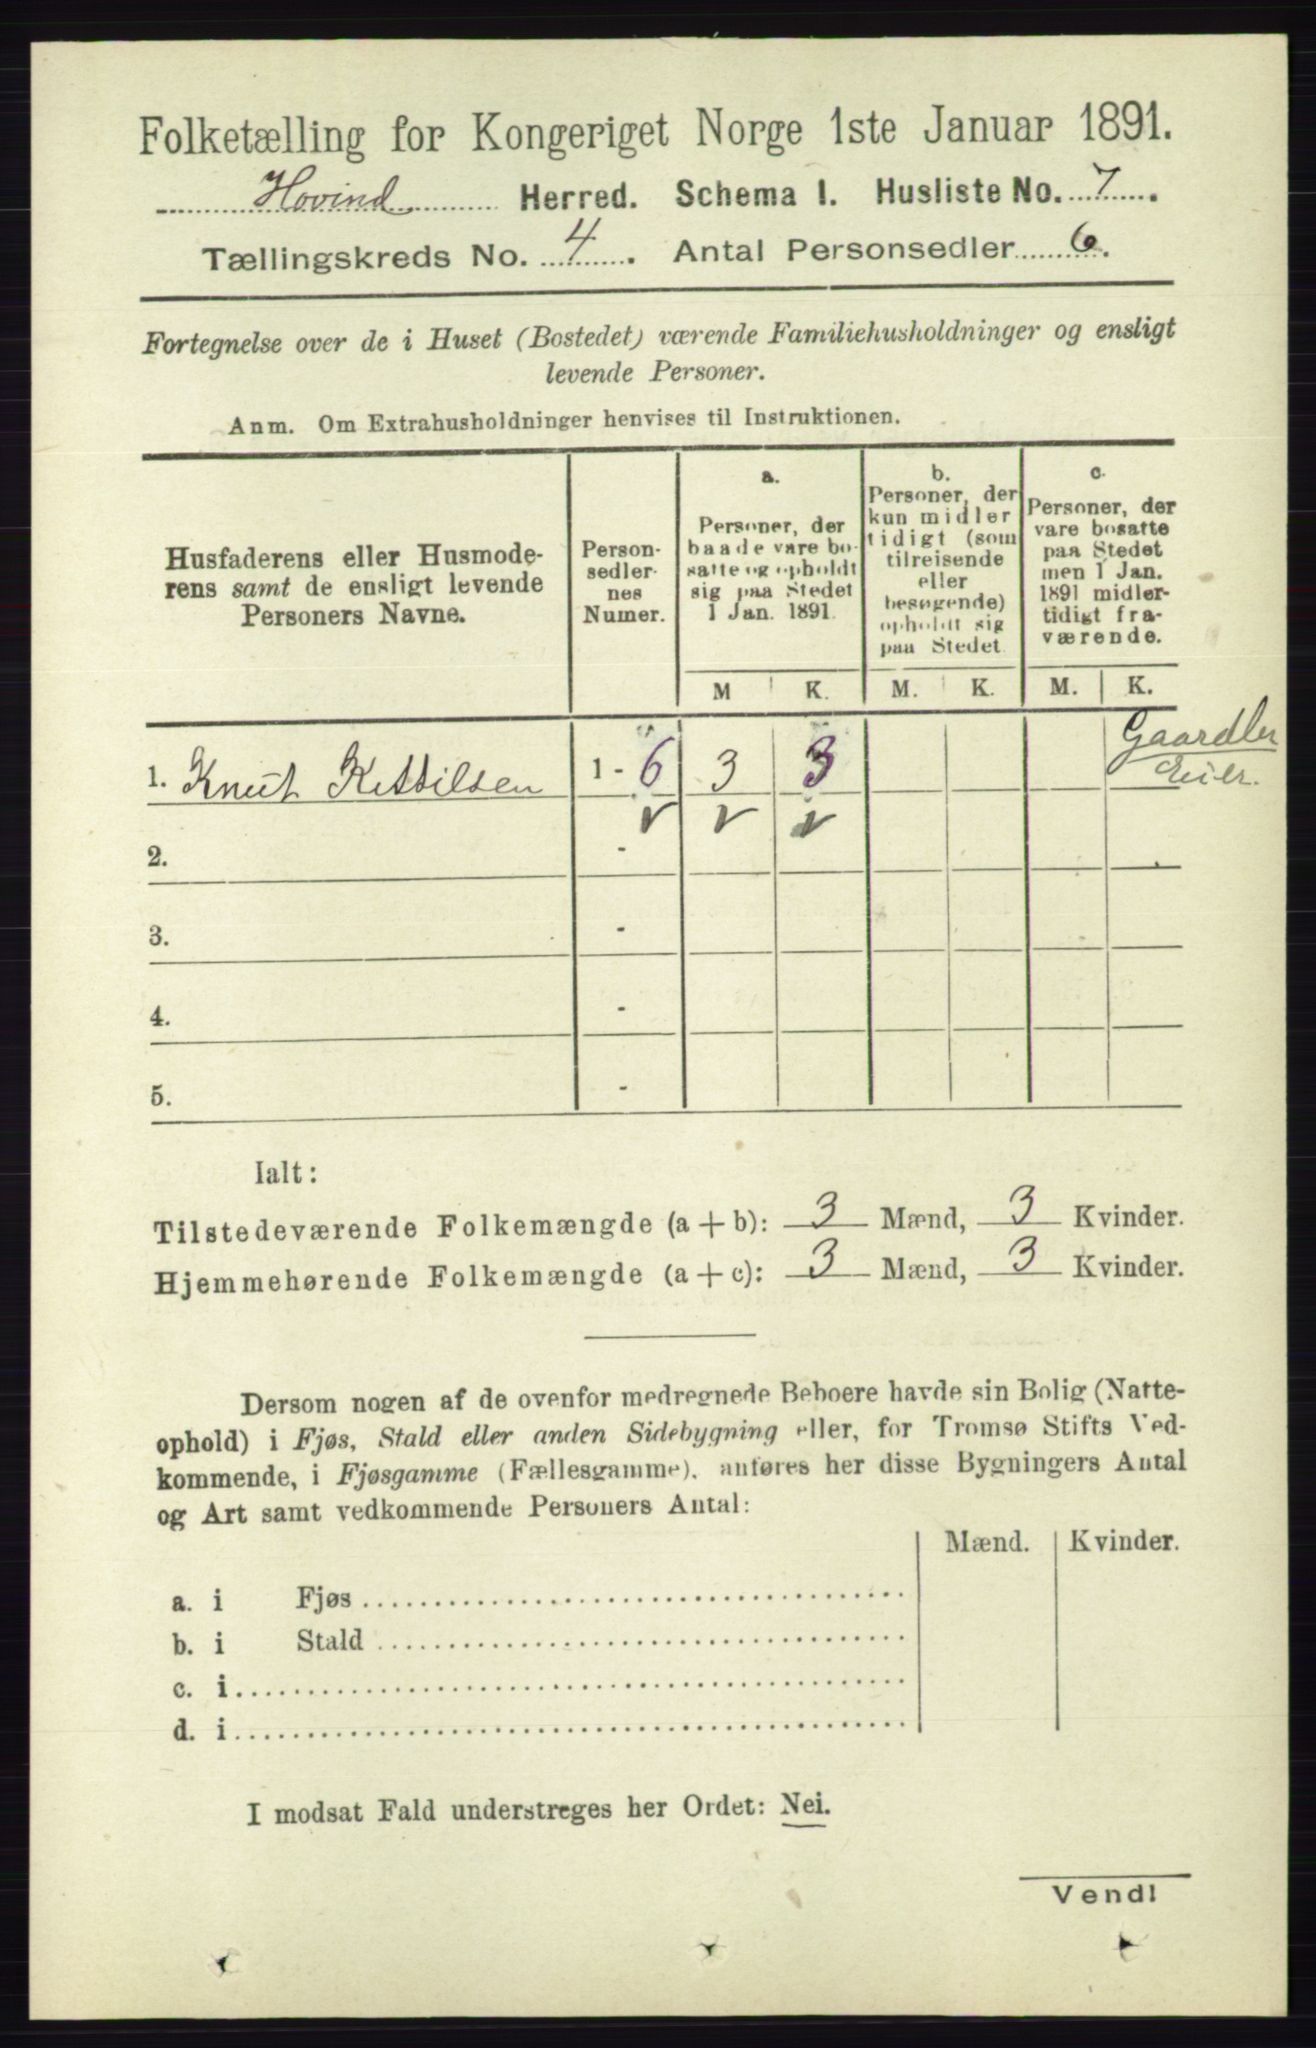 Folketælling for Kongeriget Norge 1ste Januar 1891.
Hovind Herred. Schema I. Husliste No. 7.
Tællingskreds No. 4. Antal Personsedler 6.
Fortegnelse over de i Huset (Bostedet) værende Familiehusholdninger og ensligt
levende Personer.
Anm. Om Extrahusholdninger henvises til Instruktionen.
Husfaderens eller Husmode-
rens samt de ensligt levende
Personers Navne.
Person-
sedler-
nes
Numer.
a.
Personer, der
baade vare bo-
satte og opholdt
sig paa Stedet
1 Jan. 1891.
b.
Personer, der
kun midler
tidigt (som
tilreisende
eller
besøgende)
opholdt sig
paa Stedet.
c.
Personer, der
vare bosatte
paa Stedet
men 1 Jan.
1891 midler-
tidigt fra-
værende.
M K. M. K. M. K.
1. Knut Kittilsen 1 - 6 3 3
Gaardbr
Eier.
2. -
3. -
4. -
5. -
Ialt:
Tilstedeværende Folkemængde (a + b): 3 Mænd, 3 Kvinder.
Hjemmehørende Folkemængde (a + c): 3 Mænd, 3 Kvinder.
Dersom nogen af de ovenfor medregnede Beboere havde sin Bolig (Natte-
ophold) i Fjøs, Stald eller anden Sidebygning eller, for Tromsø Stifts Ved-
kommende, i Fjøsgamme (Fællesgamme), anføres her disse Bygningers Antal
og Art samt vedkommende Personers Antal:
Mænd. Kvinder.
a. i Fjøs
b. i Stald
c. i
d. i
I modsat Fald understreges her Ordet: Nei.
Vend!